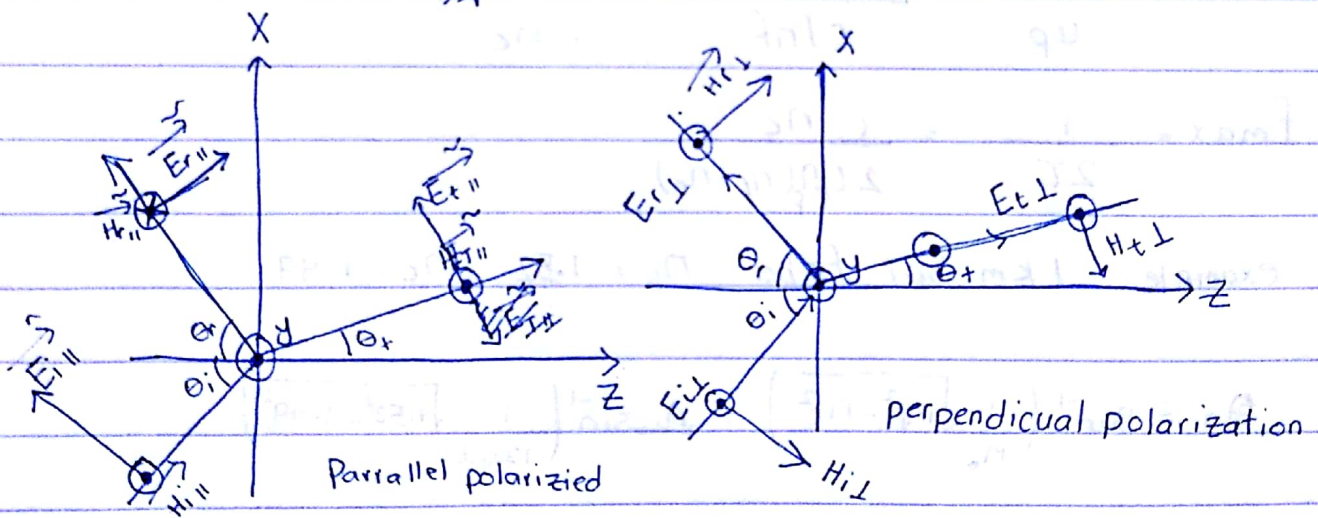 X
Er∥
Hr∥
Et∥
Ht∥
θr
y
θt
θi
Z
Ei∥
Hi∥
Parrallel polarizied
X
Hr⊥
Er⊥
Et⊥
Ht⊥
θr
y
θt
Z
θi
Ei⊥
Hi⊥
perpendicual polarization